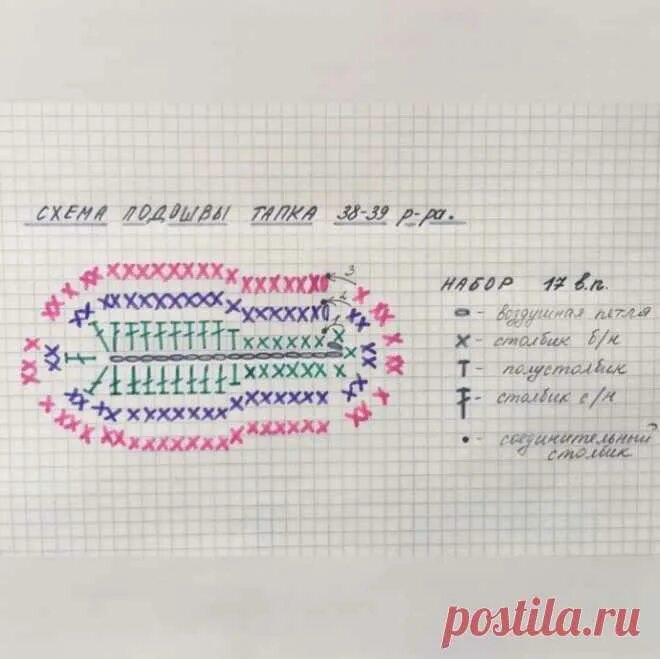 СХЕМА ПОДОШВЫ ТАПКА 38-39 р-ра.
НАБОР 17 в.п.
- воздушная петля
- столбик б/н
- полустолбик
- столбик с/н
- соединительный
столбик
3
2
1
postila.ru